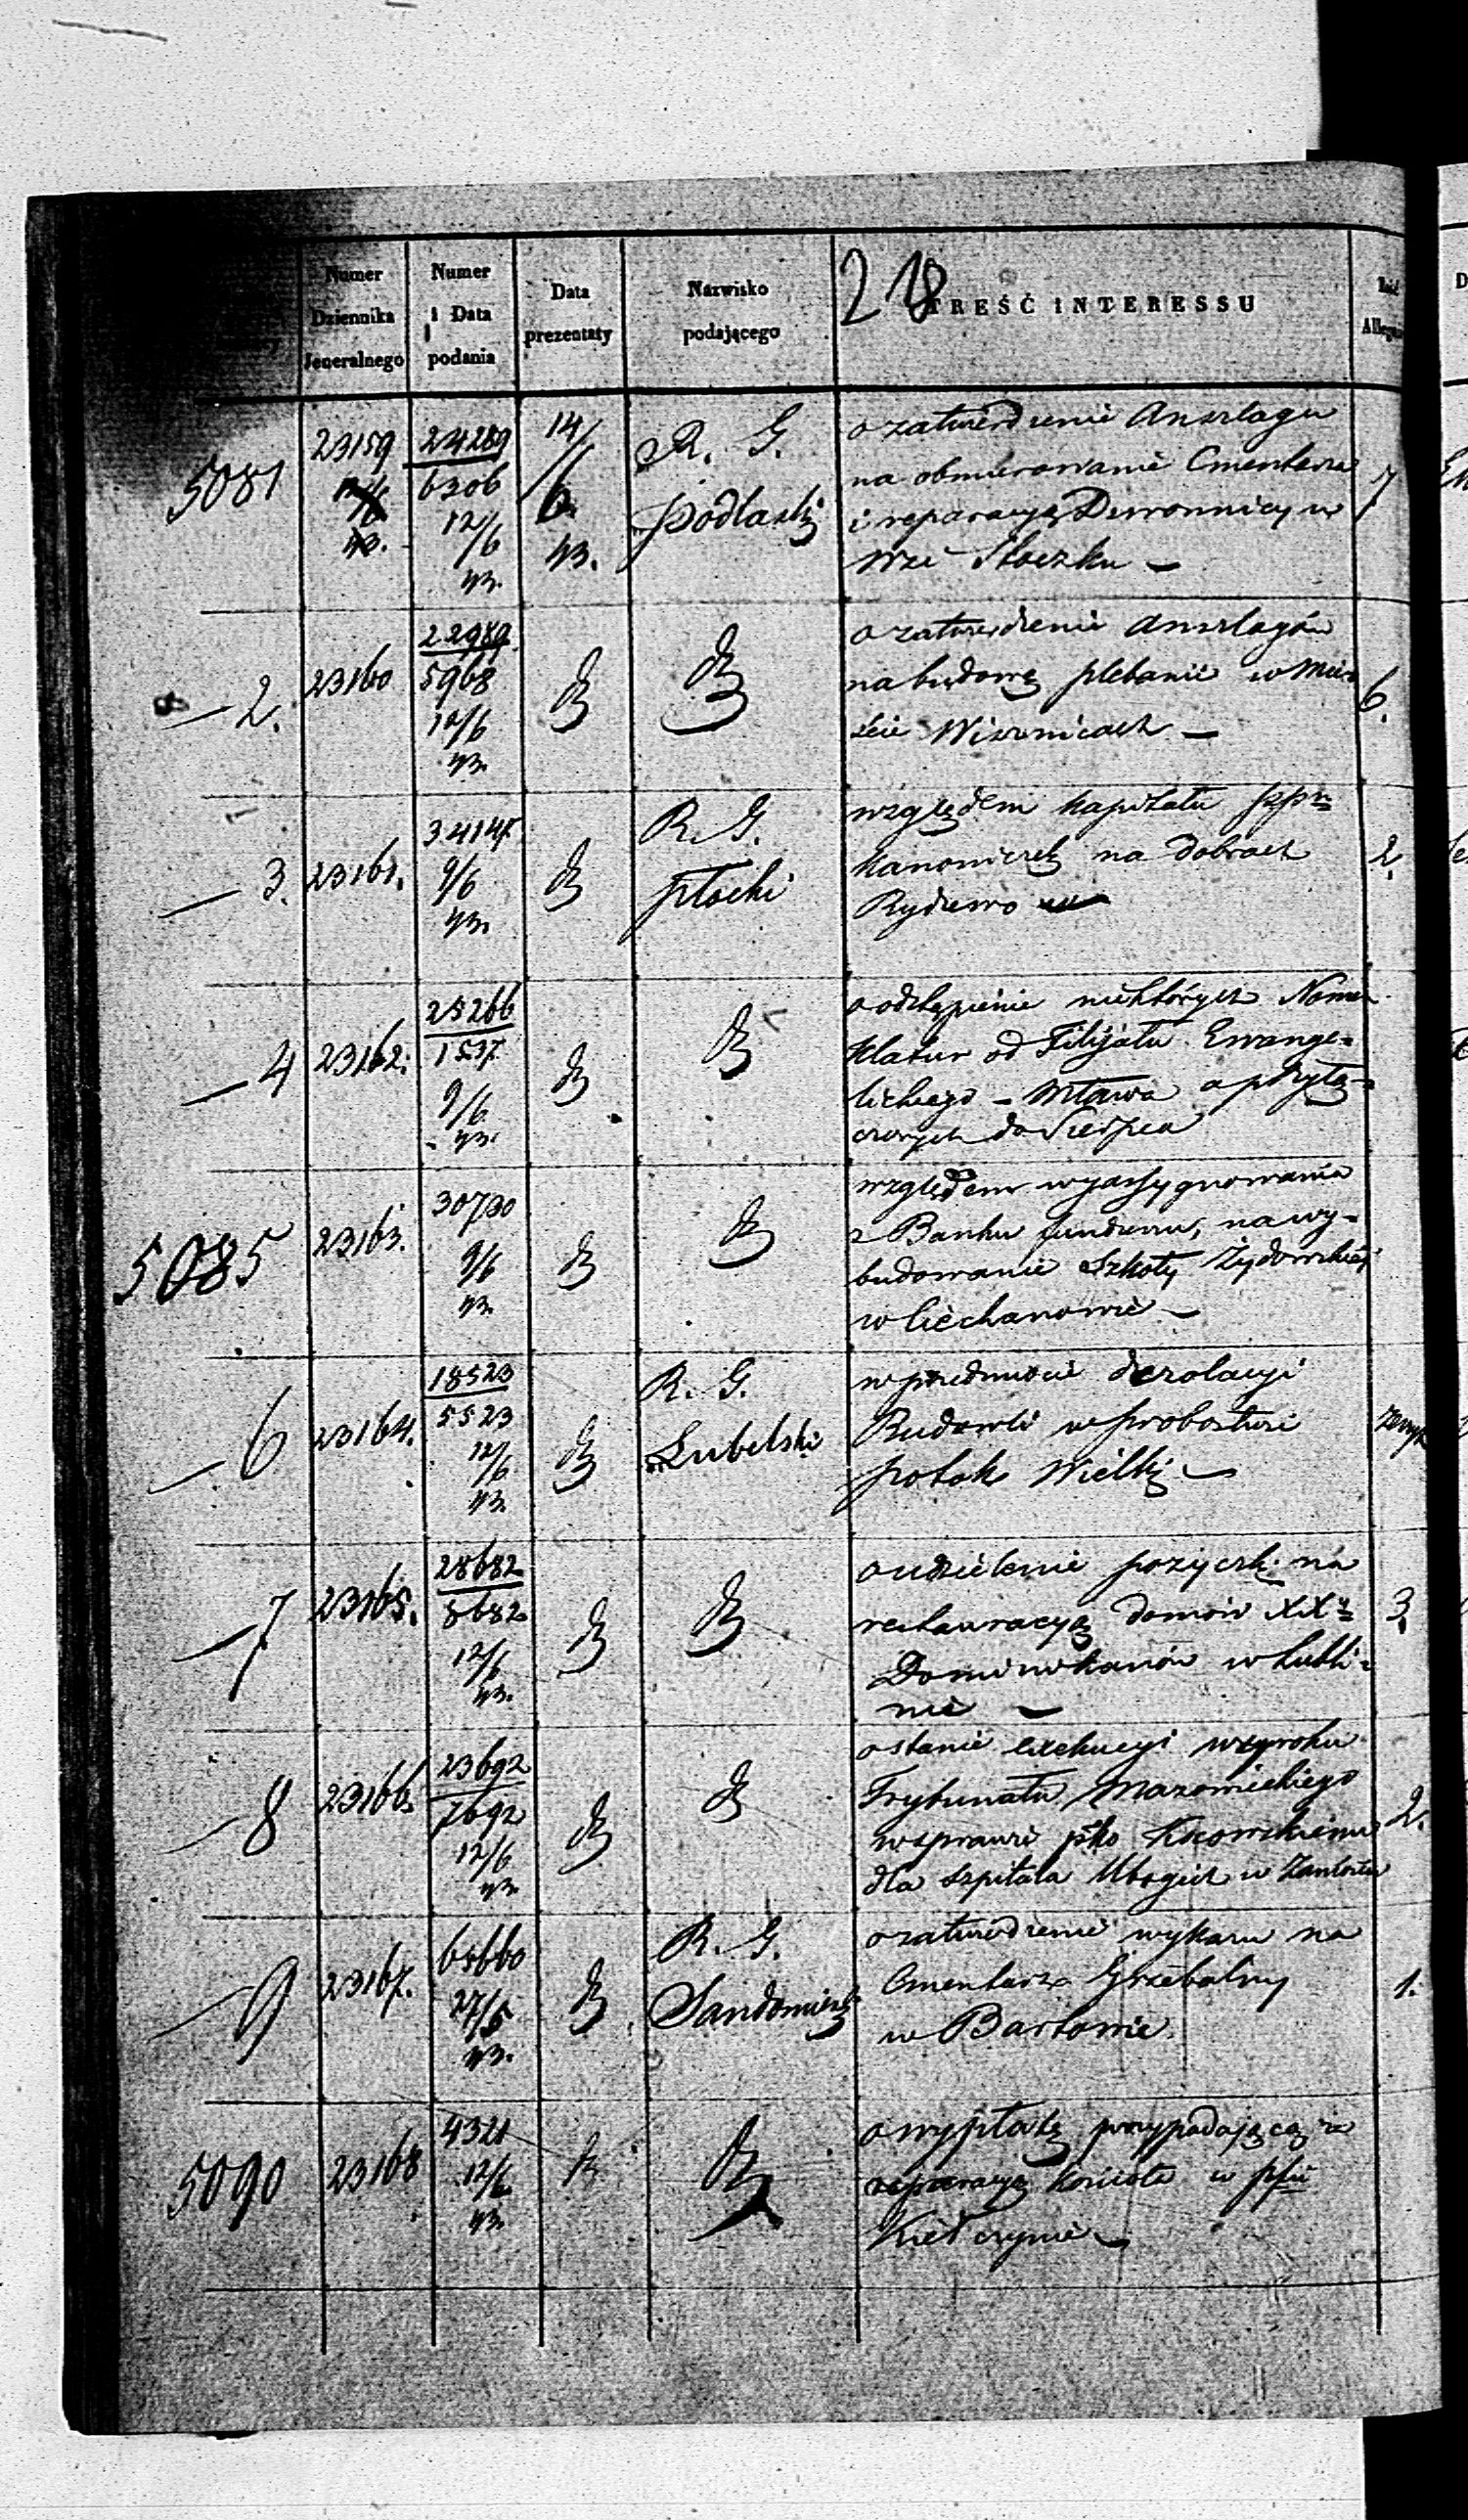 Numer Dziennika Jeneralnego
Numer i Data podania
Data prezentaty
Nazwisko podającego
218
TREŚĆ INTERESSU
5081
23159
24289
6306
12/6
43.
14/6
43.
R. G.
Podlaski
o zatwierdzenie Anszlagu
na obmurowanie Cmentarza
i reparacyą Dzwonnicy w
wsi Stoczku —
7
— 2.
23160
22989
5968
12/6
43.
o zatwierdzenie Anszlagów
na budowę plebanii w Mie-
ście Wisznicach —
6.
— 3.
23161.
34147.
9/6
43.
R. G.
Płocki
względem Kapitału
Kanoniczek na dobrach
Rydzewo
2.
— 4
23162.
25266
1537.
9/6
43.
o odstąpienie niektórych Nomen
klatur od Filijału Ewange-
lickiego – Mława a przyłą-
czonych do Sierpca
5085
23163.
30730
9/6
43.
względem wyassygnowania
z Banku funduszu, na wy-
budowanie Szkoły Żydowskiéj
w Ciechanowie —
— 6
23164.
18523
5523
12/6
43.
R. G.
Lubelski
w przedmiocie dezolacyi
Budowli w probostwie
Potok Wielki —
— 7
23165.
28682
8682
12/6
43.
o udzielenie pożyczki na
restauracyą domów XX
Dominikanów w Lubli-
nie —
3.
— 8
23166.
23692
7692
12/6
43.
o stanie exekucyi wyroku
Trybunału Mazowieckiego
w sprawie pko Kicowskiemu
dla szpitala Ubogich w
2.
— 9
23167.
65660
27/5
43.
R. G.
Sandomierski
o zatwierdzenie wykazu na
Cmentarz Grzebalny
w
1.
5090
23168
4321
12/6
43.
o wypłatę przypadającą za
reparacyą Kościoła w
Kiełczynie —